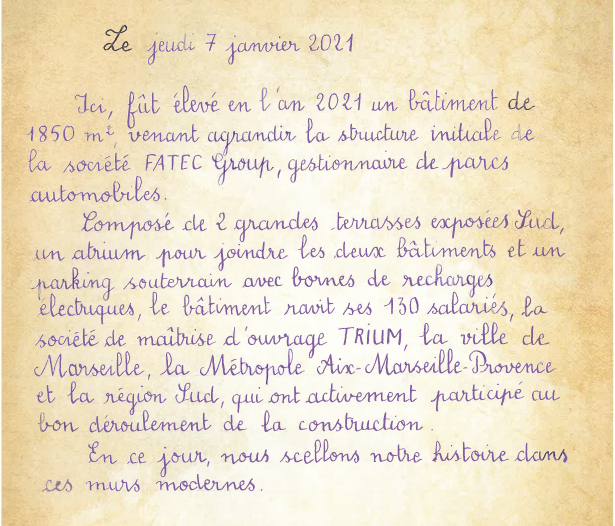 Le jeudi 7 janvier 2021
Ici, fût élevé en l'an 2021 un bâtiment de
1850 m², venant agrandir la structure initiale de
la société FATEC Group, gestionnaire de parcs
automobiles.
Composé de 2 grandes terrasses exposées Sud,
un atrium pour joindre les deux bâtiments et un
parking souterrain avec bornes de recharges
électriques, le bâtiment ravit ses 130 salariés, la
société de maîtrise d'ouvrage TRIUM, la ville de
Marseille, la Métropole Aix-Marseille-Provence
et la région Sud, qui ont activement participé au
bon déroulement de la construction.
En ce jour, nous scellons notre histoire dans
ces murs modernes.